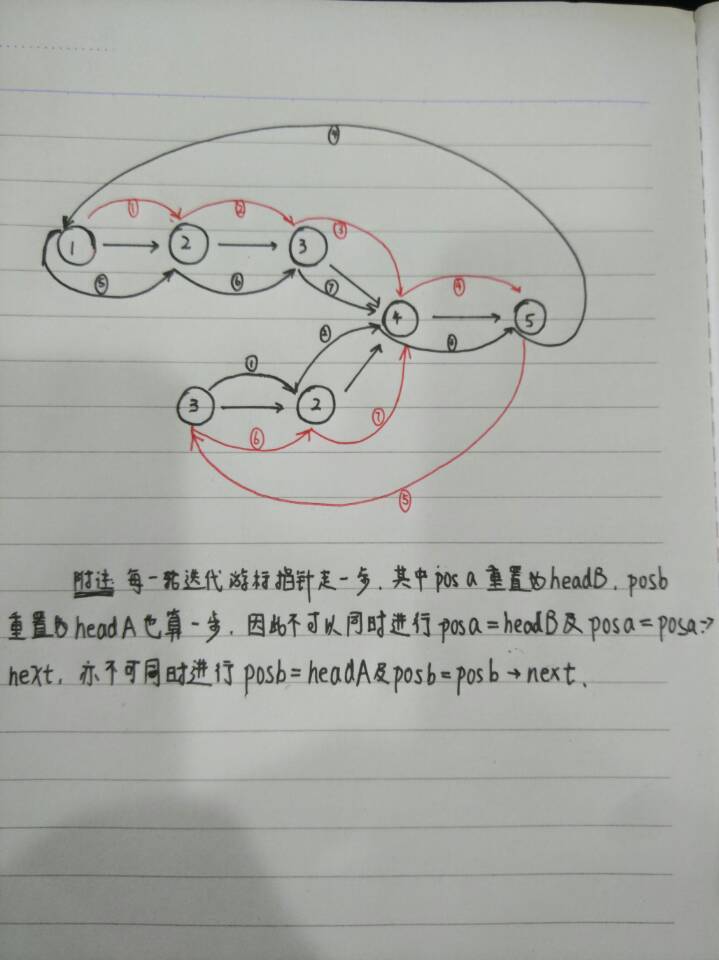 ④
① ② ③
1 2 3 ④
⑤ ⑥ ⑦
4 5
② ③
①
3 2 ⑦
⑥
⑤
附注: 每一轮迭代游标指针走一步, 其中posa重置为headB, posb
重置为headA也算一步, 因此不可以同时进行posa=headB及posa=posa→
next, 亦不可同时进行posb=headA及posb=posb→next.